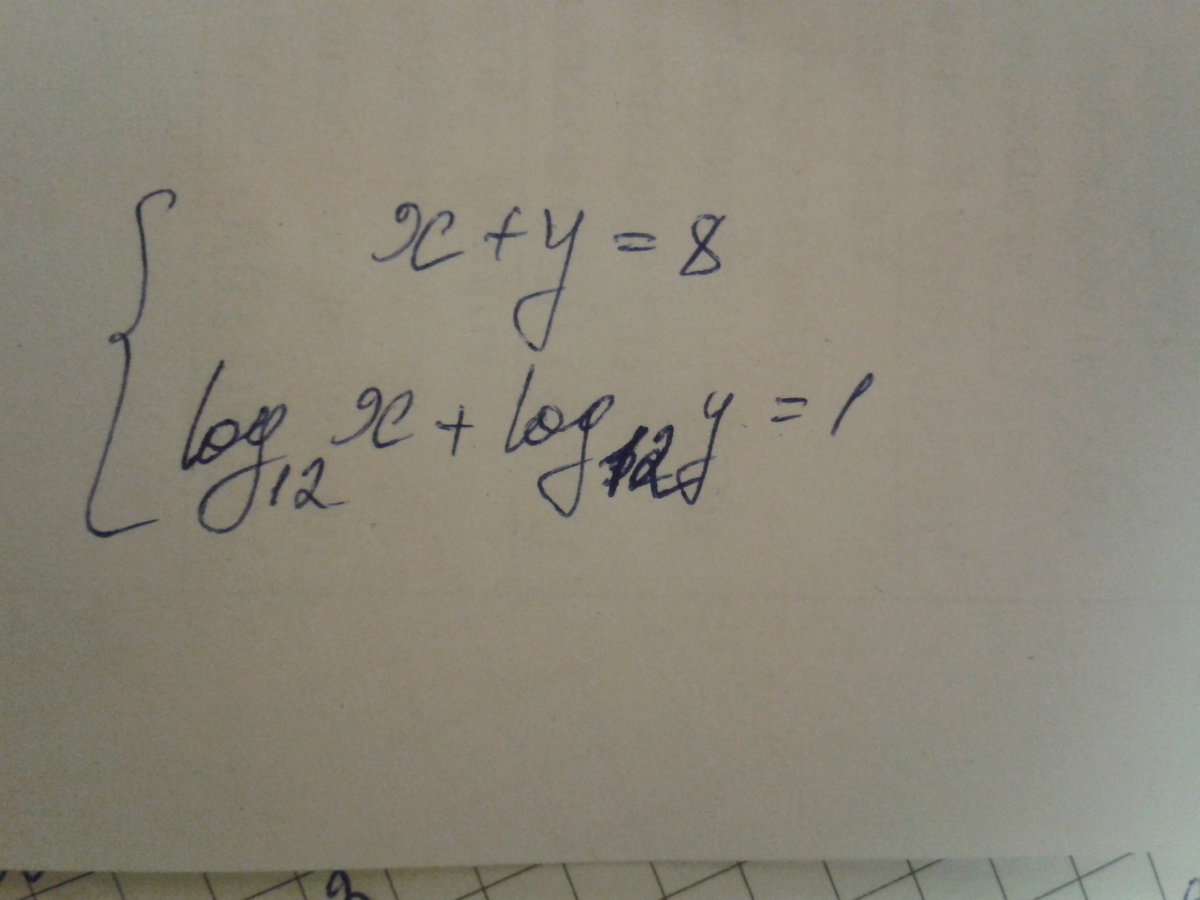 x + y = 8
log₁₂ x + log₁₂ y = 1